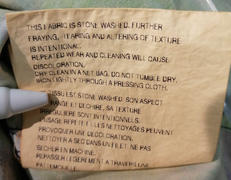 THIS FABRIC IS STONE WASHED. FURTHER
FRAYING, TEARING AND ALTERING OF TEXTURE
IS INTENTIONAL.
REPEATED WEAR AND CLEANING WILL CAUSE
DISCOLORATION.
DRY CLEAN IN A NET BAG. DO NOT TUMBLE DRY.
IRON LIGHTLY THROUGH A PRESSING CLOTH.
TISSU EST STONE WASHED. SON ASPECT
FRANGE ET DECHIRE, SA TEXTURE
IRREGULIERE SONT INTENTIONNELS.
USAGE REPETE ET LES NETTOYAGES PEUVENT
PROVOQUER UNE DECOLORATION.
NETTOYER A SEC DANS UN FILET. NE PAS
SECHER EN MACHINE.
REPASSER LEGEREMENT A TRAVERS UNE
PATTEMOUILLE.